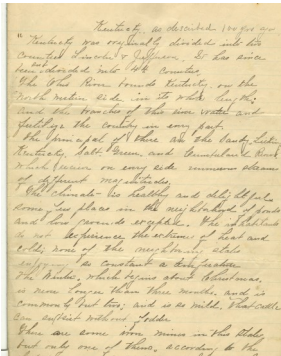 Kentucky, as described 100 yrs ago
" Kentucky was originally divided into two
counties Lincoln & Jefferson. It has since
been divided into 4th counties
The Ohio River bounds Kentucky on the
North side in its whole length;
and the branches of this river water and
fertilize the country in every part.
The principal of these are the Sandy, Licking
Kentucky, Salt, Green, and Cumberland Rivers
which on every side streams
of different magnitudes.
The climate is healthy and delightful
some places in the neighborhood of ponds
and low grounds excepted. The inhabitants
do not experience the extremes of heat and
cold; none of the neighboring states
so constant a temperature.
The Winter, which begins about Christmas,
is never longer than three months, and is
commonly but two; and is so mild, that cattle
can subsist without fodder.
There are some iron mines in this State
but only one of them, according to the